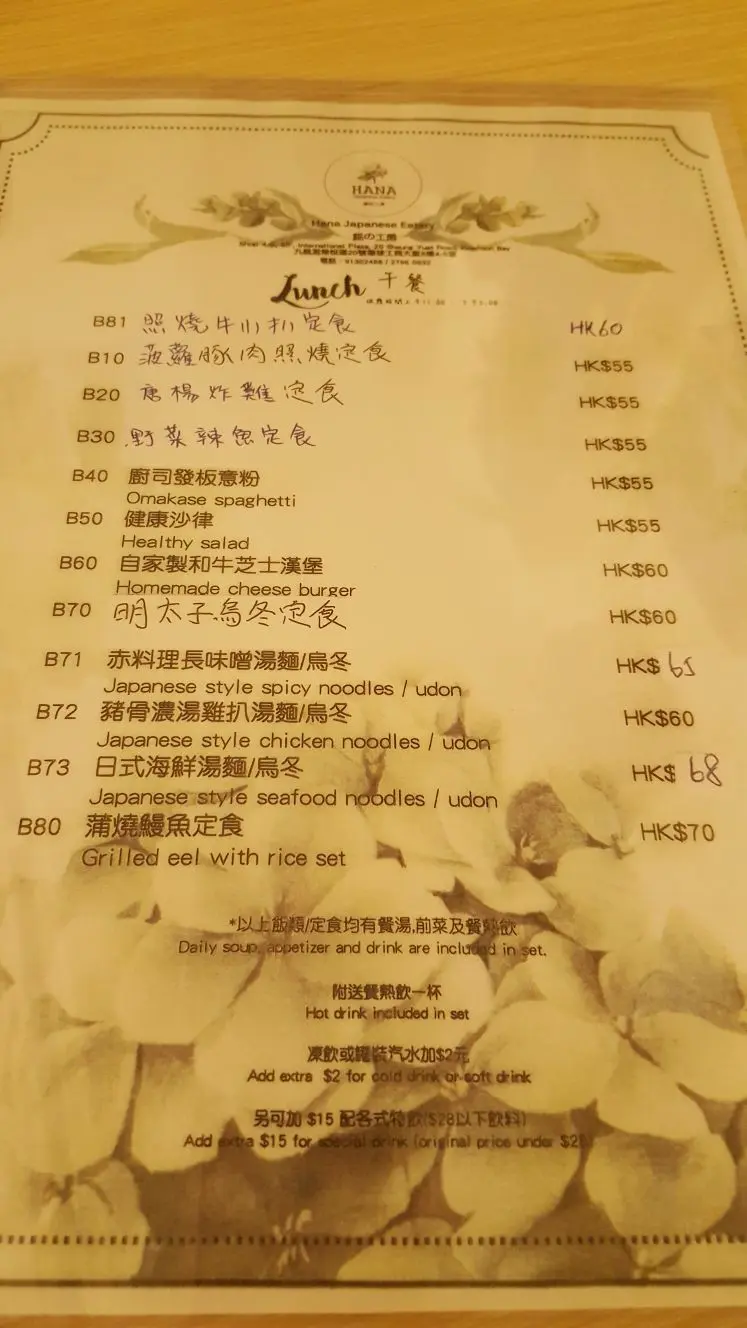 HANA
Hana Japanese Eatery
Lunch 午餐
B81 照燒牛小扒定食 HK60
B10 菠蘿豚肉照燒定食 HK$55
B20 唐楊炸雞定食 HK$55
B30 野菜辣魚定食 HK$55
B40 廚司發板意粉 HK$55
Omakase spaghetti
B50 健康沙律 HK$55
Healthy salad
B60 自家製和牛芝士漢堡 HK$60
Homemade cheese burger
B70 明太子烏冬定食 HK$60
B71 赤料理長味噌湯麵/烏冬 HK$ 65
Japanese style spicy noodles / udon
B72 豬骨濃湯雞扒湯麵/烏冬 HK$60
Japanese style chicken noodles / udon
B73 日式海鮮湯麵/烏冬 HK$ 68
Japanese style seafood noodles / udon
B80 蒲燒鰻魚定食 HK$70
Grilled eel with rice set
*以上飯類/定食均有餐湯,前菜及餐熱飲
Daily soup, appetizer and drink are included in set.
附送餐熱飲一杯
Hot drink included in set
凍飲或罐裝汽水加$2元
Add extra $2 for cold drink or soft drink
另可加 $15 配各式特飲($28以下飲料)
Add extra $15 for special drink (original price under $28)